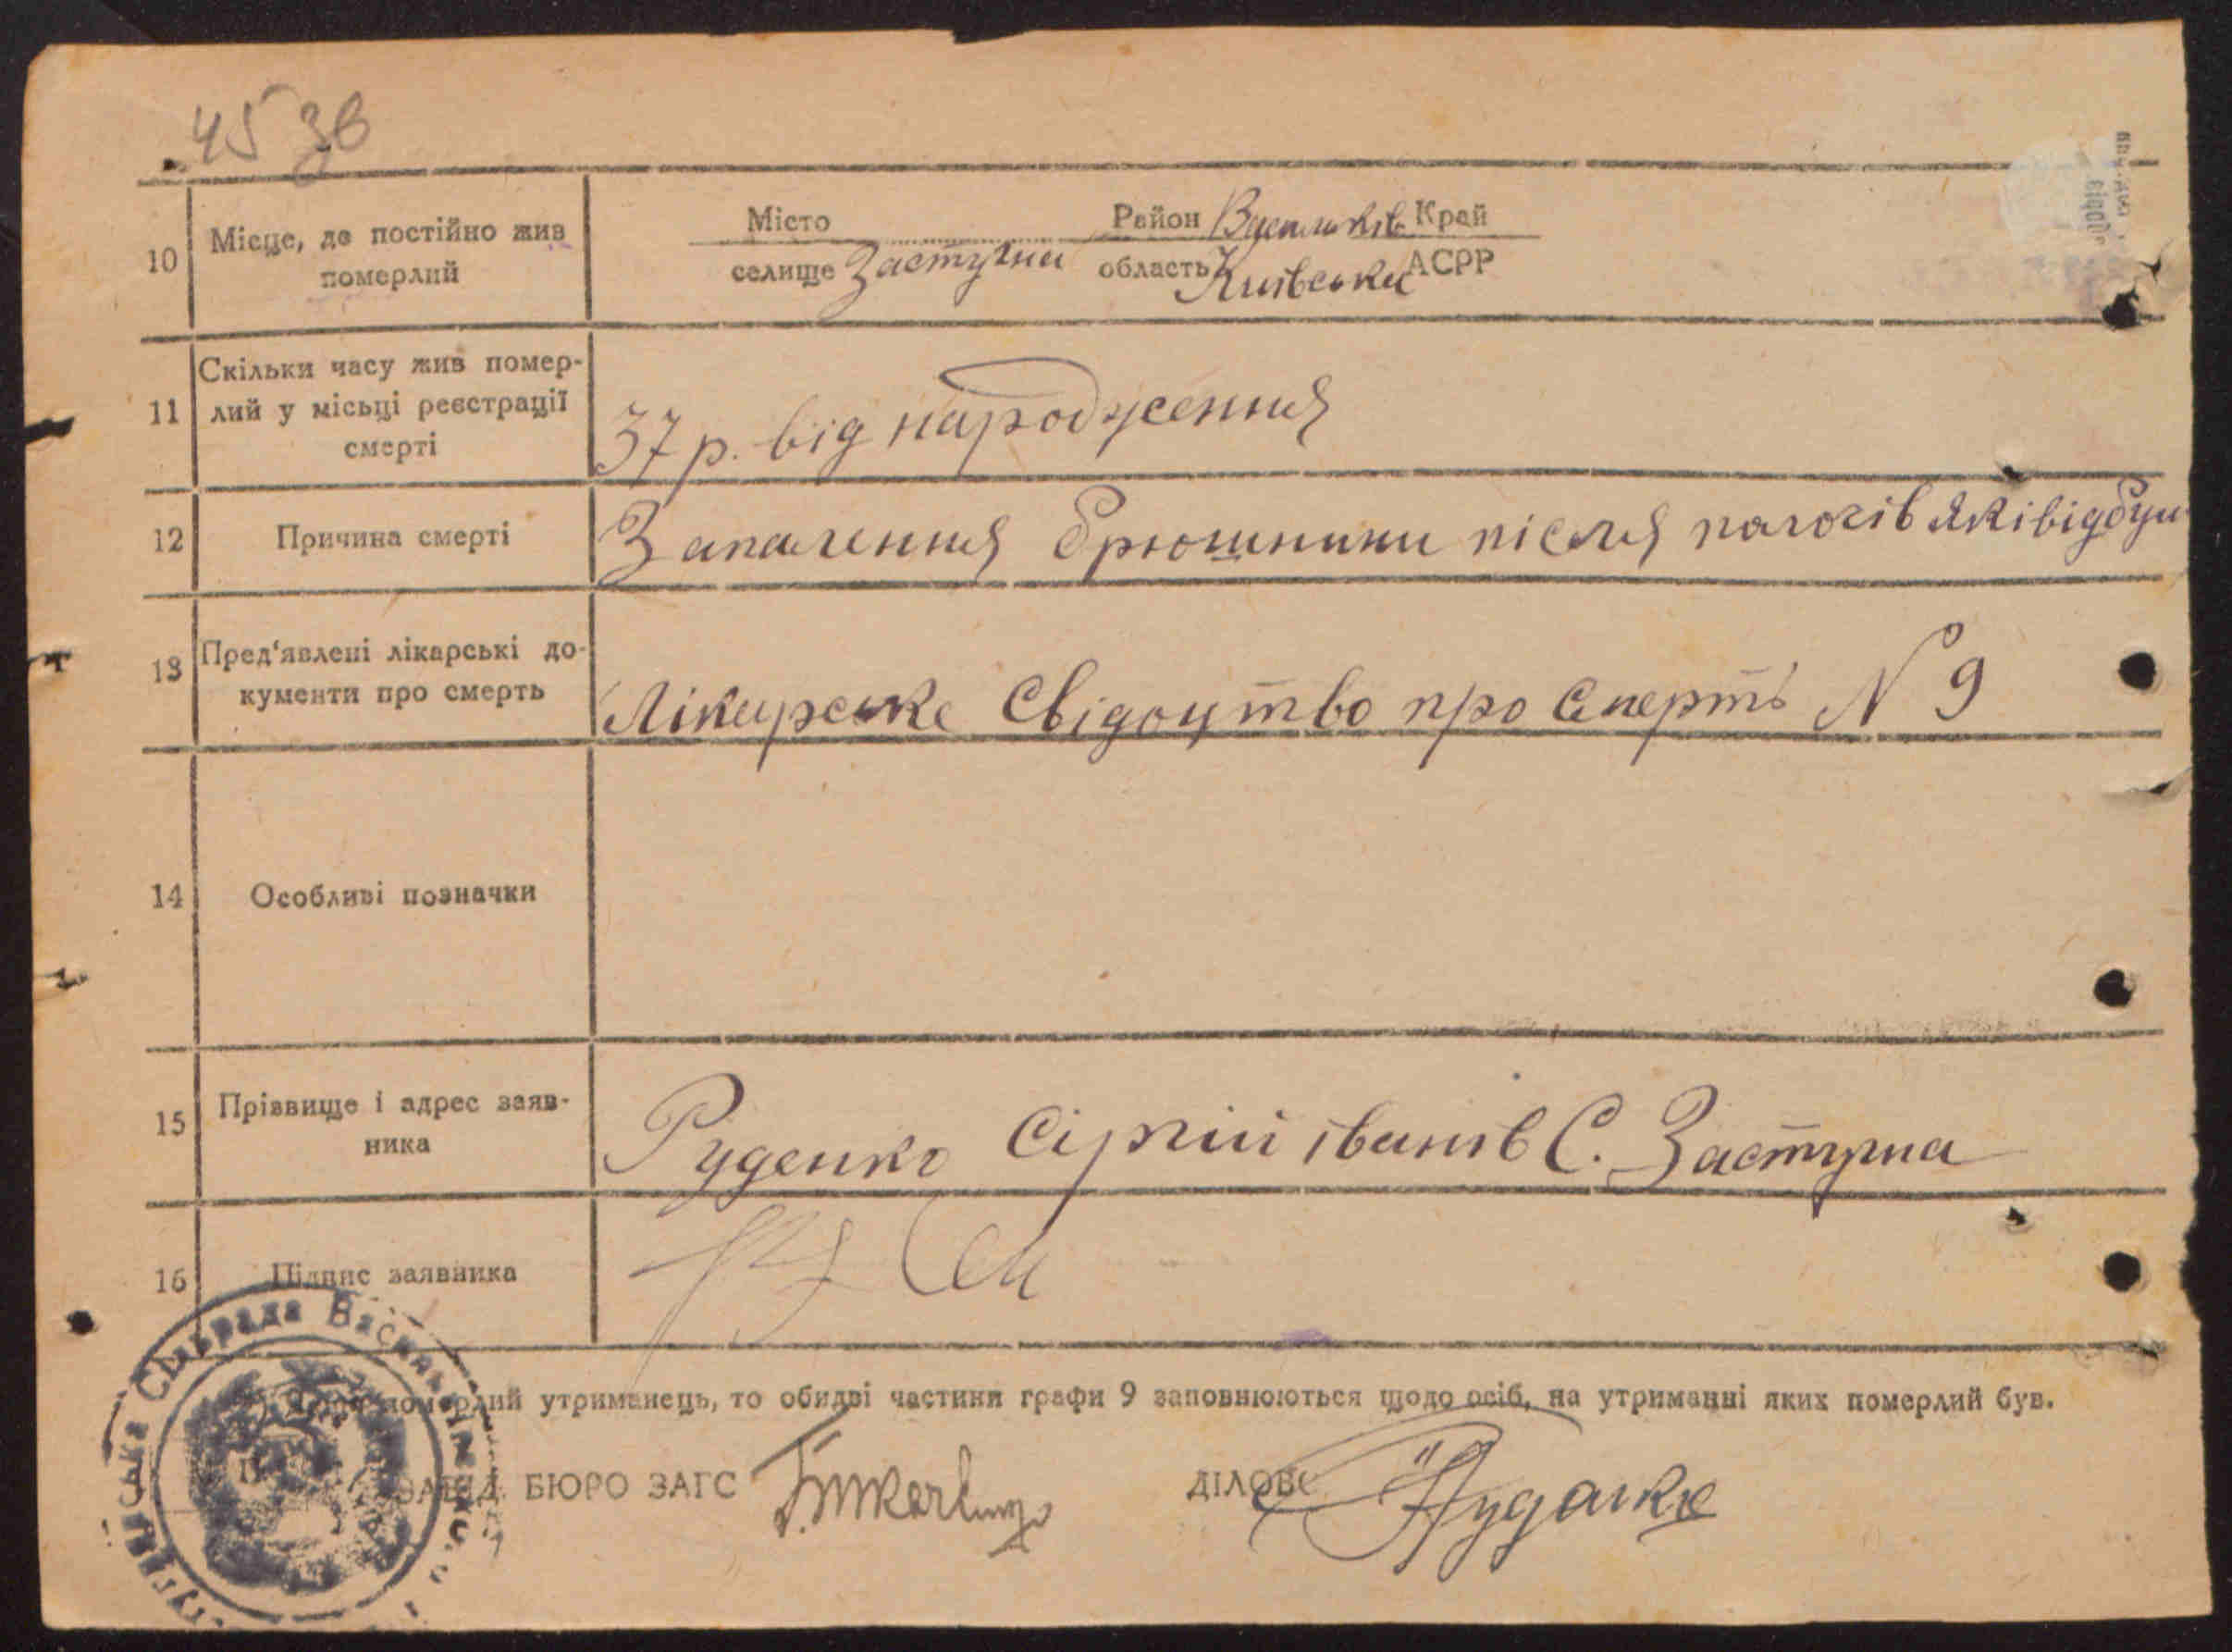 45 зв
10 Місце, де постійно жив померлий
Місто Район Васильків Край
селище Застугна область Київська АСРР
11 Скільки часу жив помер-
лий у місьці реєстрації
смерті
37 р. від народження
12 Причина смерті Запалення брюшнини після пологів які відбули
13 Пред'явлені лікарські до-
кументи про смерть
Лікарське Свідоцтво про Смерть N 9
14 Особливі позначки
15 Прізвище і адрес заяв-
ника
Руденко Сіргій іванів С. Застугна
16 Підпис заявника
померлий утриманець, то обидві частини графи 9 заповнюються щодо осіб, на утриманні яких померлий був.
ЗАВІД. БЮРО ЗАГС
ДІЛОВ
Сільрада